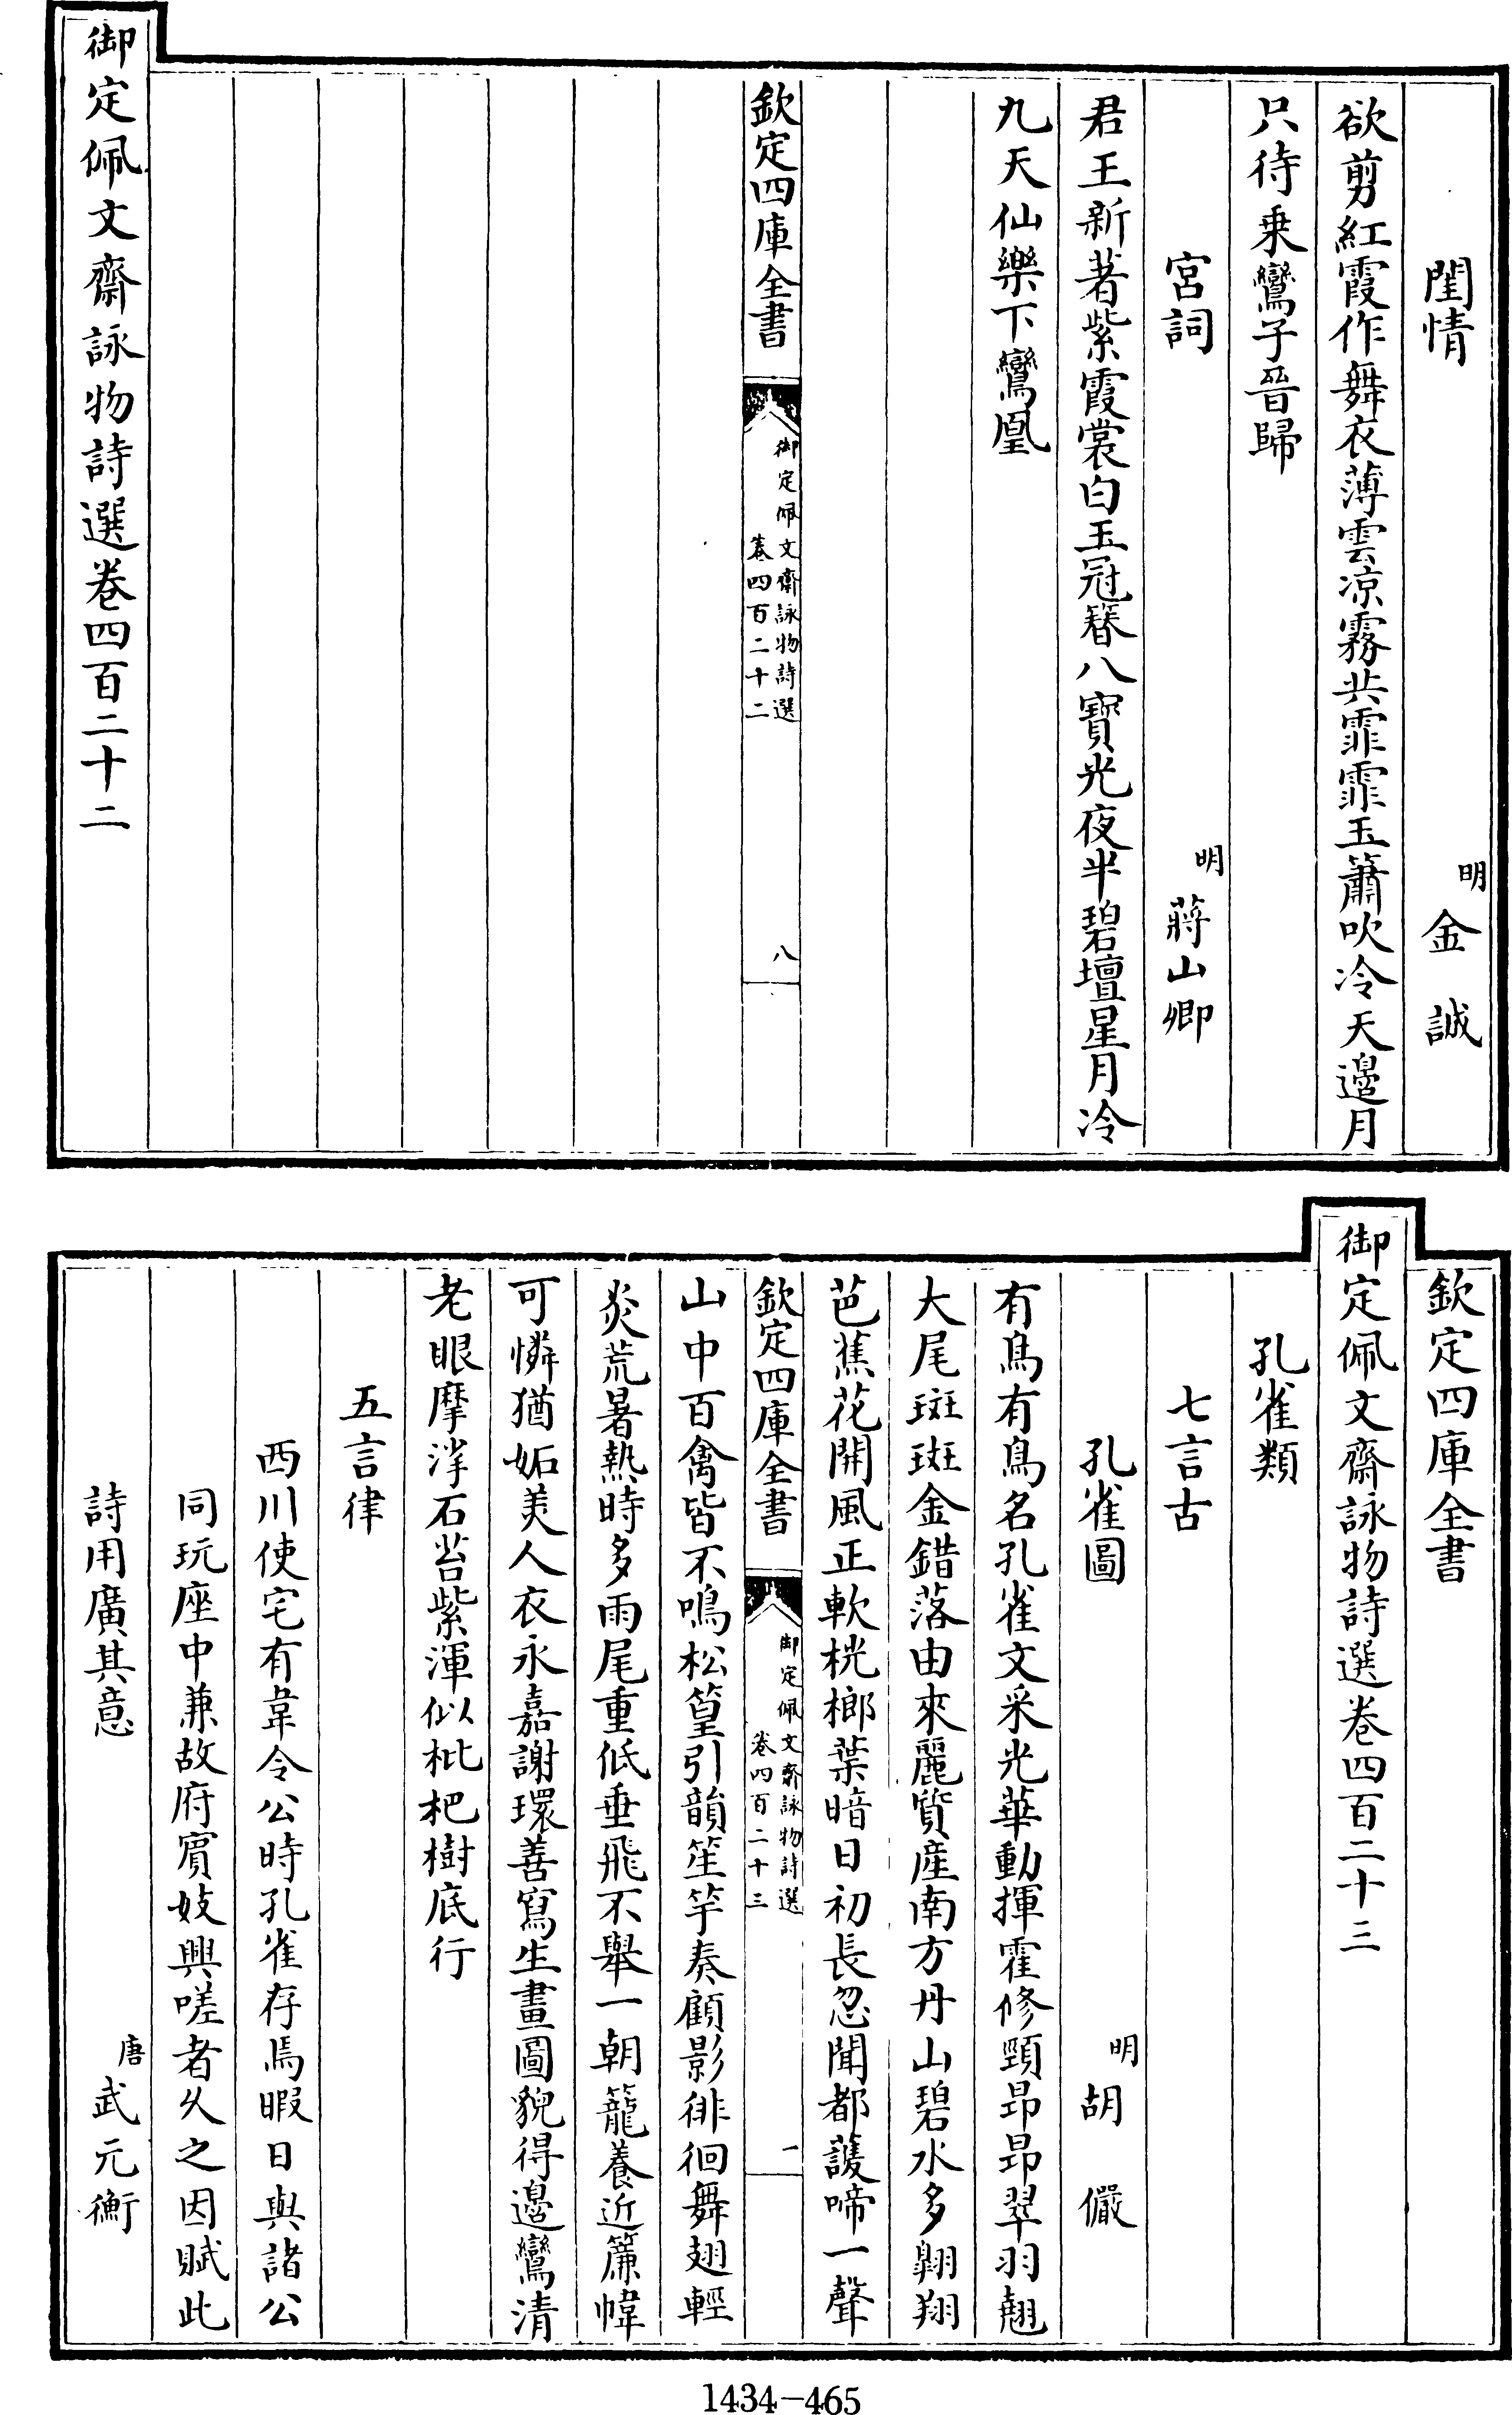 閨情　明金　誠
欲剪紅霞作舞衣薄雲凉霧共霏霏玉簫吹冷天邉月
只待乗鸞子晉歸
宮詞　明蔣山卿
君王新著紫霞裳白玉冠簪八寶光夜半碧壇星月冷
九天仙樂下鸞凰
欽定四庫全書
御定佩文齋詠物詩選
卷四百二十二
八
御定佩文齋詠物詩選卷四百二十二
欽定四庫全書
御定佩文齋詠物詩選卷四百二十三
孔雀類
七言古
孔雀圖　明胡　儼
有鳥有鳥名孔雀文采光華動揮霍修頸昻昻翠羽翹
大尾斑斑金錯落由來麗質産南方丹山碧水多翺翔
芭蕉花開風正軟桄榔葉暗日初長忽聞都護啼一聲
欽定四庫全書
御定佩文齋詠物詩選
卷四百二十三
一
山中百禽皆不鳴松篁引韻笙竽奏顧影徘徊舞翅輕
炎荒暑熱時多雨尾重低垂飛不舉一朝籠養近簾幃
可憐猶妬美人衣永嘉謝環善寫生畫圖貌得邉鸞清
老眼摩挲石苔紫渾似枇杷樹底行
五言律
西川使宅有韋令公時孔雀存焉暇日與諸公
同玩座中兼故府賓妓興嗟者久之因賦此
詩用廣其意　唐武元衡
1434-465